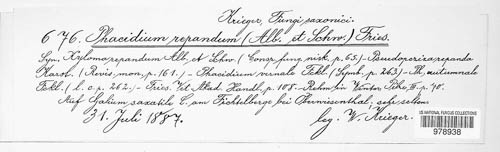 Krieger, Fungi saxonici.
676. Phacidium repandum (Alb. et Schw.) Fries.
Syn. Xyloma repandum Alb. et Schw. (Consp. fung. nisk. p. 65.) - Pseudopeziza repanda
Karst. (Revis. mon. p. 161.) - Phacidium vernale Fckl. (Symb. p. 263) - Ph. autumnale
Fckl. (l. c. p. 262.) - Fries. Vet. Akad. Handl. p. 108. - Rehm in Winter, Pilze III. p. 70.
Auf Galium saxatile L. am Fichtelberge bei Oberwiesenthal, sehr selten.
31. Juli 1887. leg. W. Krieger.
US NATIONAL FUNGUS COLLECTIONS
978938